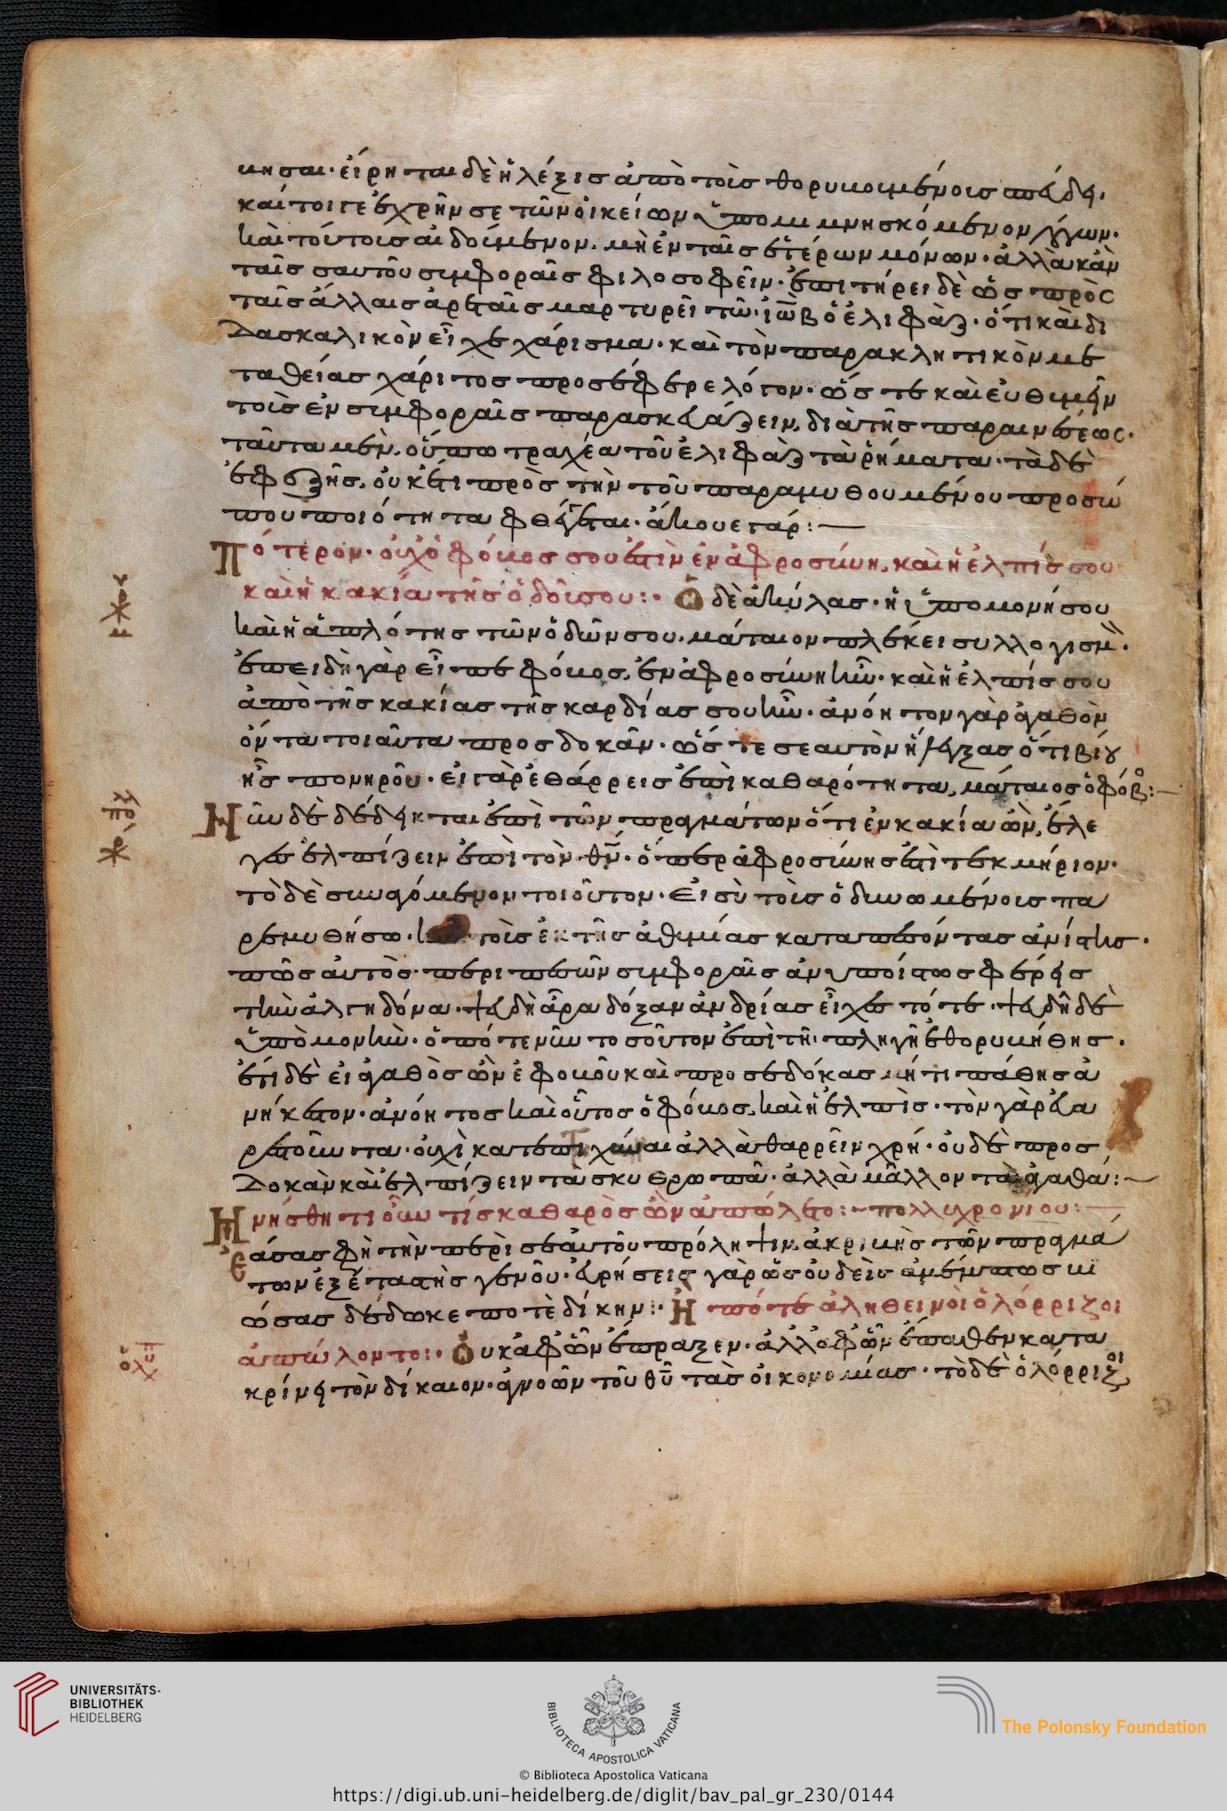 κησαι· εἴρηται δὲ ἡ λέξις ἀπὸ τοῖς θορυκοιμένοις
καίτοιγε ἐχρῆν σε τῶν οἰκείων ὑπομιμνησκόμενον
καὶ τούτοις αἰδούμενον· μὴ ἐν ταῖς ἑτέρων μόνων· ἀλλὰ κἂν
ταῖς σαυτοῦ συμφοραῖς φιλοσοφεῖν· ἐπιτήρει δὲ ὡς πρὸς
ταῖς ἄλλαις ἀρεταῖς μαρτυρεῖ τῶ ἰὼβ ὁ ἐλιφάζ· ὅτι καὶ δι
δασκαλικὸν εἶχε χάρισμα· καὶ τὸν παρακλητικὸν με
ταθείας χάριτος προσεφερε λόγον· ὥς τε καὶ εὐθυμεῖν
τοῖς ἐν συμφοραῖς παρασκευάζειν, διὰ τῆς παραινέσεως·
ταῦτα μὲν, οὔπω τραχέα τοῦ ἐλιφὰζ τὰ ῥήματα· τὰ δὲ
ἐφεξῆς, οὐκέτι πρὸς τὴν τοῦ παραμυθουμένου προσώ
που ποιότητα φθέγγεται· ἄκουε γάρ:
Πότερον· οὐχ ὁ φόβος σου ἐστὶν ἐν ἀφροσύνη, καὶ ἡ ἐλπίς σου
καὶ ἡ κακία τῆς ὁδοῦ σου:· Ὁ δὲ ἀκύλας· ἡ ὑπομονή σου
καὶ ἡ ἁπλότης τῶν ὁδῶν σου· μάταιον πλέκει συλλογισμ·
ἐπειδὴ γάρ εἶπε φόβος, ἐν ἀφροσύνη ἦν· καὶ ἡ ἐλπίς σου
ἀπὸ τῆς κακίας τῆς καρδίας σου ἦν· ἀνόητον γὰρ ἀγαθὸν
ὄντα τοιαῦτα προσδοκᾶν· ὥς τε σεαυτὸν ἤλεγξας ὅτι βίου
ἦς πονηροῦ· εἰ γὰρ ἐθάρρεις ἐπὶ καθαρότητα, μάταιος ὁ φόβ:
Νῦν δὲ δέδεικται ἐπὶ τῶν πραγμάτων ὅτι ἐν κακία ὢν, ἔλε
γε ἐλπίζειν ἐπὶ τὸν θν· ὅπερ ἀφροσύνης ἐστὶ τεκμήριον·
τὸ δὲ συναγόμενον τοιοῦτον· Εἰ σὺ τοῖς ὀδυνωμένοις πα
ρεμυθήσω· τοῖς ἐκ τῆς ἀθυμίας καταπεσόντας
πῶς αὐτὸς περιπεσῶν συμφοραῖς ἀνυποίστως φέρεις
τὴν ἀλγηδόνα· ψευδῆ ἄρα δόξαν ἀνδρίας εἶχε τότε· ψευδῆ δὲ
ὑπομονὴν· ὁπότε νῦν τοσοῦτον ἐπὶ τῆ πληγῆ ἐθορυβήθης·
ἔτι δὲ εἰ ἀγαθὸς ὢν ἐφοβοῦ καὶ προσεδόκας μήτι πάθης ἀ
μήκετον· ἀνόητος καὶ οὗτος ὁ φόβος, καὶ ἡ ἐλπὶς· τὸν γὰρ ἐνα
ρετοῦντα· οὐχὶ κατεπτηχέναι ἀλλὰ θαρρεῖν χρή· οὐδὲ προσ
δοκὰν καὶ ἐλπίζειν τὰ σκυθρωπὰ· ἀλλὰ μᾶλλον τὰ ἀγαθά:
Μνήσθητι οὖν τίς καθαρὸς ὢν ἀπώλετο: πολυχρονίου:
Ἐάσας φὴ τὴν περὶ σεαυτοῦ πρόληψιν, ἀκριβὴς τῶν πραγμά
των ἐξέταστὴς γενοῦ· εὑρήσεις γὰρ ὡς οὐδεὶς
ώσας δέδωκε ποτὲ δίκην:· Ἢ πότε ἀληθεινοὶ ὁλόρριζοι
ἀπώλοντο:· Οὐκ ἀφ ὧν ἔπραξεν, ἀλλ ἀφ ὧν ἔπαθεν κατα
κρίνει τὸν δίκαιον· ἀγνοῶν τοῦ θυ τὰς οἰκονομίας· τὸ δὲ ὁλόρριζοι
UNIVERSITÄTS-
BIBLIOTHEK
HEIDELBERG
BIBLIOTECA APOSTOLICA VATICANA
The Polonsky Foundation
© Biblioteca Apostolica Vaticana
https://digi.ub.uni-heidelberg.de/diglit/bav_pal_gr_230/0144